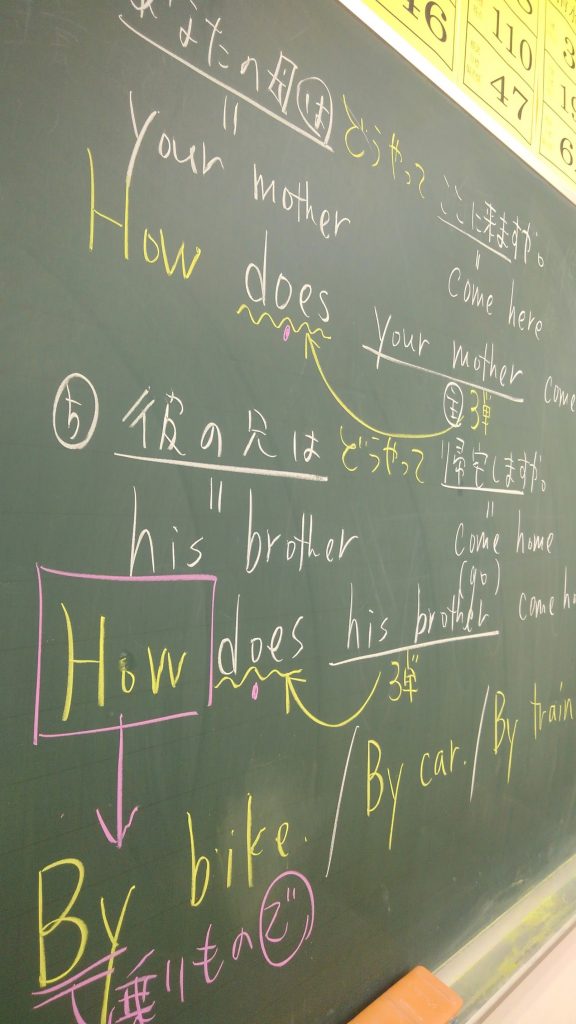 あなたの母は どうやって ここに来ますか。
your mother come here
How does your mother come
主 3単
⑤ 彼の兄は どうやって 帰宅しますか。
his brother come home
(go)
How does his brother come
3単
By bike. / By car. / By train
乗りもので
46 110 47